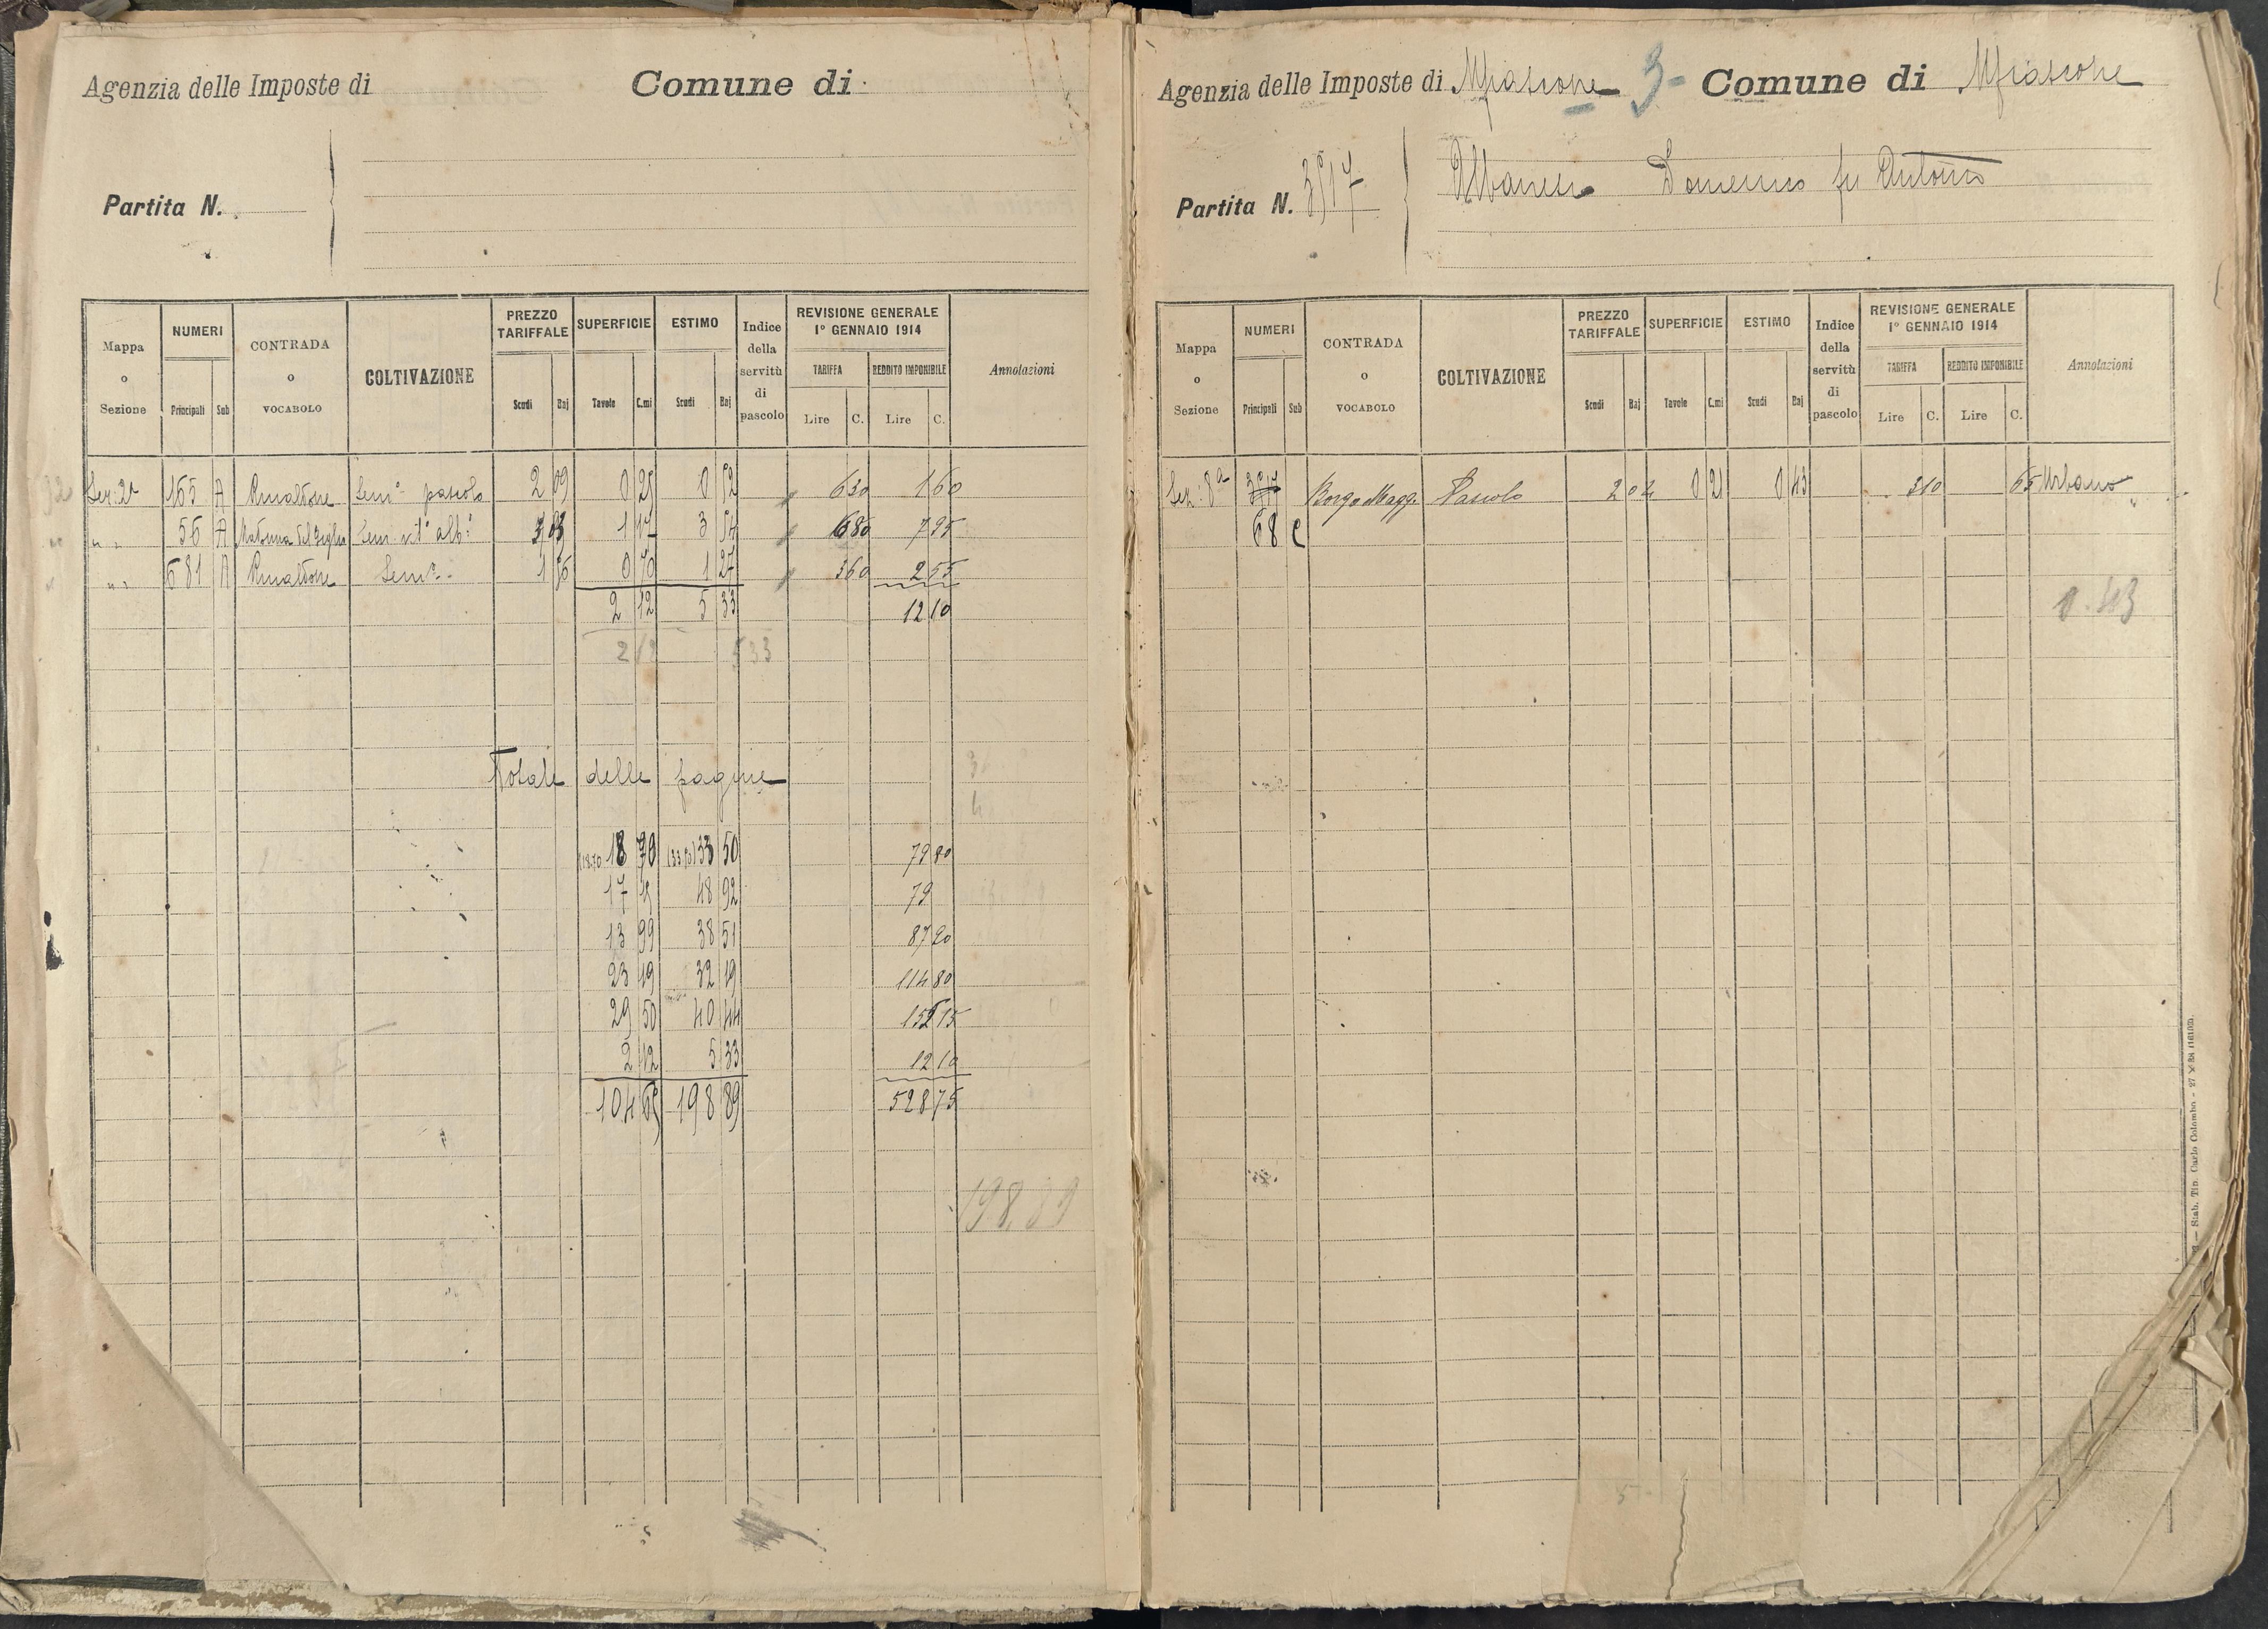 Agenzia delle Imposte di Comune di
Partita N.
Mappa o Sezione NUMERI Principali Sub CONTRADA o VOCABOLO COLTIVAZIONE PREZZO TARIFFALE Scudi Baj SUPERFICIE Tavole C.mi ESTIMO Scudi Baj Indice della servitù di pascolo REVISIONE GENERALE 1° GENNAIO 1914 TARIFFA Lire C. REDDITO IMPONIBILE Lire C. Annotazioni
Sez: 2a 165 A Rinaldone Sem.o pascolo 2 09 0 25 0 52 6 30 1 60
" " 56 A Madonna del Giglio Sem. vit.o alb.o 3 03 1 17 3 54 6 80 7 95
" " 681 A Rinaldone Sem.o 0 70 1 27 3 60 2 55
2 12 5 33 12 10
2 12 5 33
Totale delle pagine
18 70 33 50 79 80
17 48 92 79
13 99 38 51 87 20
23 19 32 19 114 80
29 50 40 44 15
2 12 5 33 12 10
104 65 198 89 528 75
198.89
Agenzia delle Imposte di Mfiascone 3 Comune di Mfiascone
Partita N. 3517 Albanesi Domenico fu Antonio
Mappa o Sezione NUMERI Principali Sub CONTRADA o VOCABOLO COLTIVAZIONE PREZZO TARIFFALE Scudi Baj SUPERFICIE Tavole C.mi ESTIMO Scudi Baj Indice della servitù di pascolo REVISIONE GENERALE 1° GENNAIO 1914 TARIFFA Lire C. REDDITO IMPONIBILE Lire C. Annotazioni
Sez: 8a Borgo Magg. Pascolo 2 04 0 21 0 43 3 10 65 Urbano
68 C
0.43
Stab. Tip. Carlo Colombo